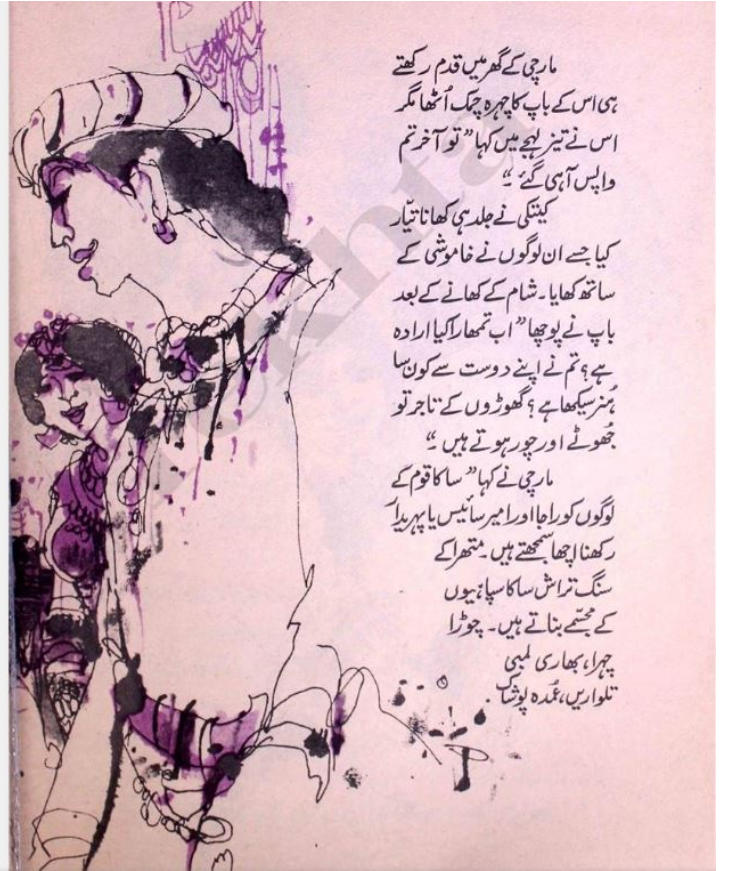 مارچی کے گھر میں قدم رکھتے
ہی اس کے باپ کا چہرہ چمک اُٹھا مگر
اس نے تیز لہجے میں کہا ”تو آخر تم
واپس آ ہی گئے ۔“
کینتکی نے جلد ہی کھانا تیّار
کیا جسے ان لوگوں نے خاموشی کے
ساتھ کھایا۔ شام کے کھانے کے بعد
باپ نے پوچھا ”اب تمھارا کیا ارادہ
ہے؟ تم نے اپنے دوست سے کون سا
ہُنر سیکھا ہے؟ گھوڑوں کے تاجر تو
جُھوٹے اور چور ہوتے ہیں ۔“
مارچی نے کہا ”ساکا قوم کے
لوگوں کو راجا اور امیر سائیس یا پہریدار
رکھنا اچھا سمجھتے ہیں۔ متھرا کے
سنگ تراش ساکا سپاہیوں
کے مجسّمے بناتے ہیں۔ چوڑا
چہرا، بھاری لمبی
تلواریں، عُمدہ پوشاک
rekhta